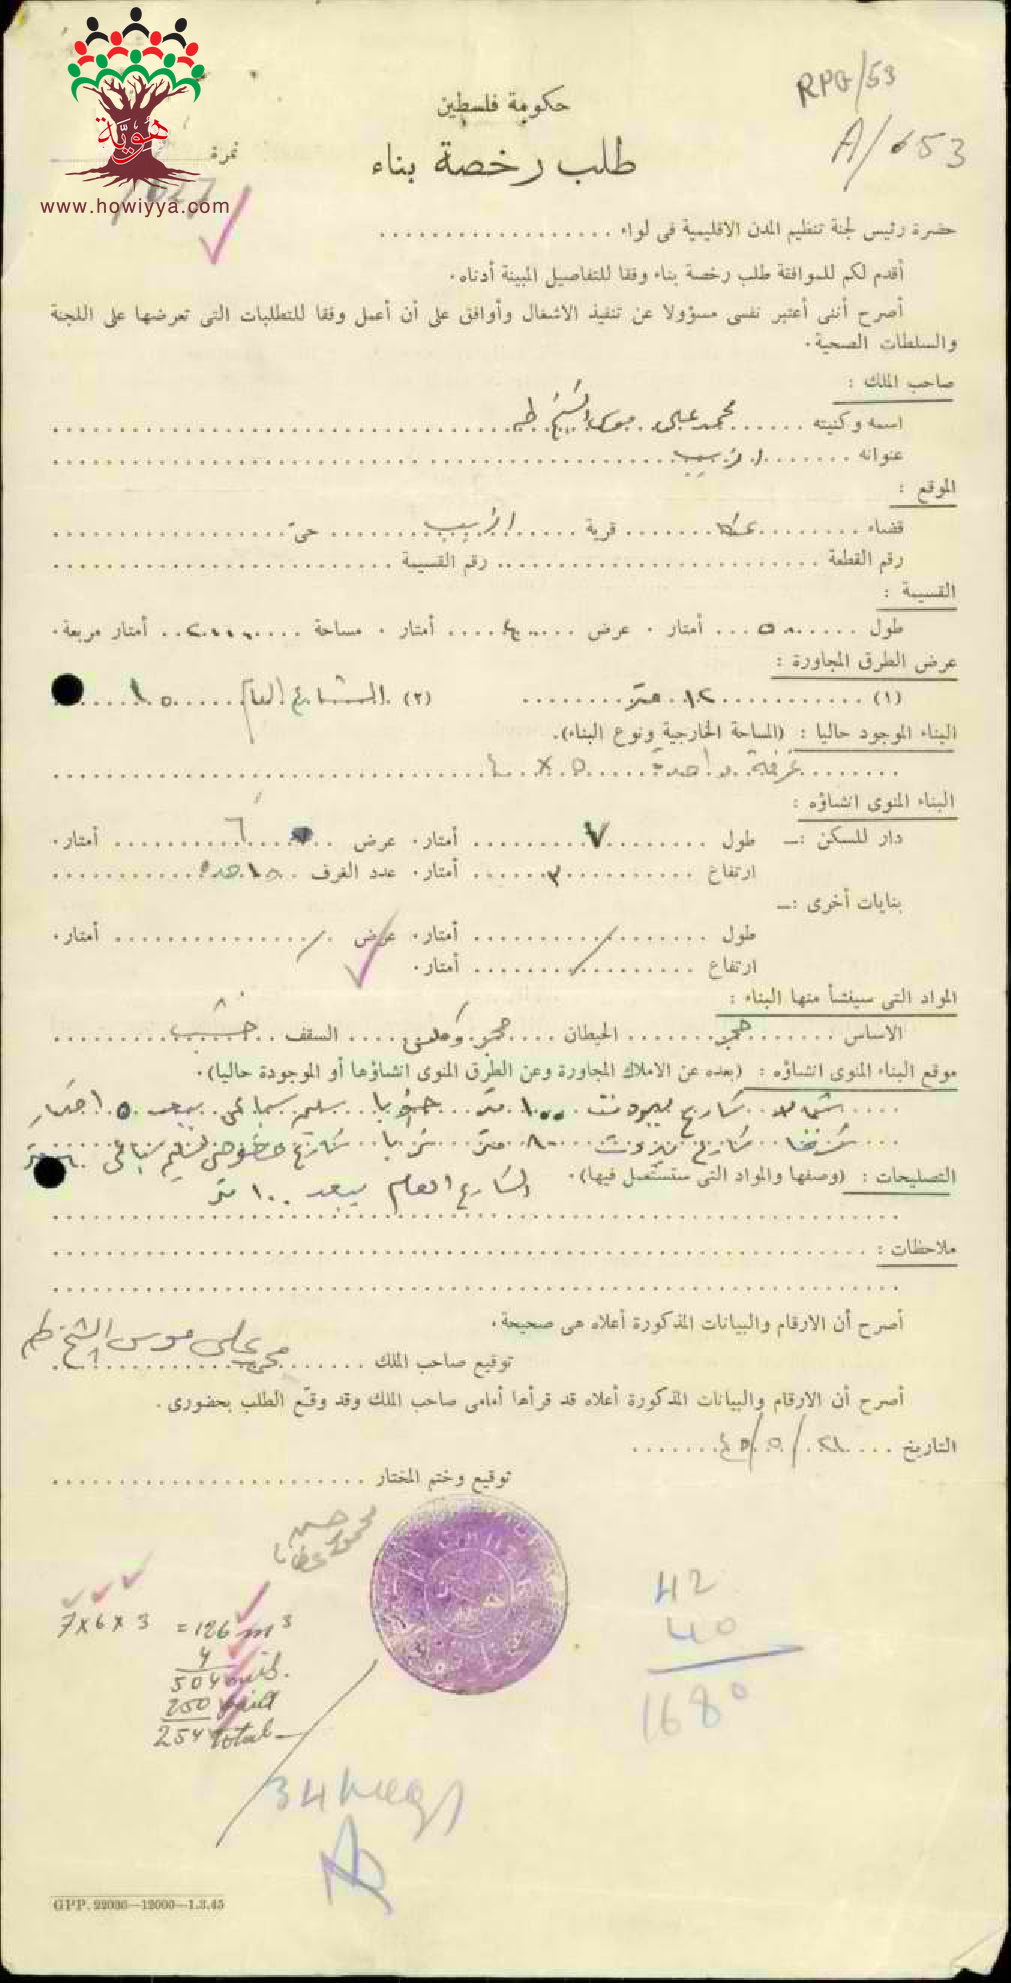 RPG/53
A/653
هُويّة
www.howiyya.com
حكومة فلسطين
طلب رخصة بناء
نمرة
حضرة رئيس لجنة تنظيم المدن الاقليمية فى لواء
أقدم لكم للموافقة طلب رخصة بناء وفقا للتفاصيل المبينة أدناه.
أصرح أننى أعتبر نفسى مسؤولا عن تنفيذ الاشغال وأوافق على أن أعمل وفقا للتطلبات التى تعرضها على اللجنة
والسلطات الصحية.
صاحب الملك :
اسمه وكنيته محمد على موسى الشيخ طه
عنوانه الزيب
الموقع :
قضاء عكا قرية الزيب حى
رقم القطعة رقم القسيمة
القسيمة :
طول ٥٠ أمتار. عرض ٤٠ أمتار. مساحة ٢٠٠٠ أمتار مربعة.
عرض الطرق المجاورة :
(١) ١٢ متر (٢) الشارع العام ١٥
البناء الموجود حاليا : (المساحة الخارجية ونوع البناء).
غرفة واحدة ٥ × ٤
البناء المنوى انشاؤه :
دار للسكن :— طول ٧ أمتار. عرض ٦ أمتار.
ارتفاع ٣ أمتار. عدد الغرف واحده
بنايات أخرى :—
طول / أمتار. عرض / أمتار.
ارتفاع / أمتار.
المواد التى سينشأ منها البناء :
الاساس حجر الحيطان حجر السقف خشب
موقع البناء المنوى انشاؤه : (بعده عن الاملاك المجاورة وعن الطرق المنوى انشاؤها أو الموجودة حاليا).
شمالا شارع بيروت ١٠٠ متر جنوبا يبعد ٥ امتار
شرقا شارع بيروت ٨٠ متر غربا شارع
التصليحات : (وصفها والمواد التى ستستعمل فيها).
الشارع العام يبعد ١٠٠ متر
ملاحظات :
أصرح أن الارقام والبيانات المذكورة أعلاه هى صحيحة.
توقيع صاحب الملك محمد على موسى الشيخ طه
أصرح أن الارقام والبيانات المذكورة أعلاه قد قرأها أمامى صاحب الملك وقد وقّع الطلب بحضورى.
التاريخ ٢٨/٥/٤٥
توقيع وختم المختار
7x6x3 = 126 m³
4
504 mils.
250 paid
254 total
42
40
1680
GPP. 22030—12000—1.3.45